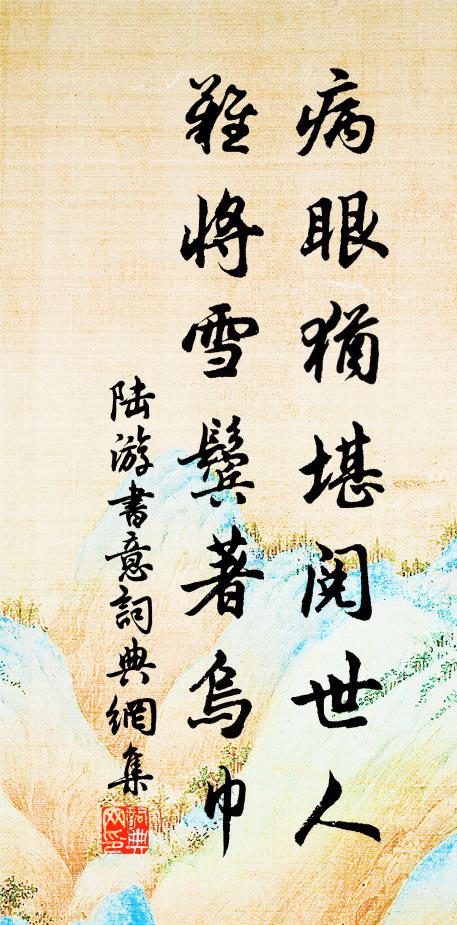 病眼猶堪閱世人
難將雪鬢著烏巾
陸游書意詞典網集
詞典網印